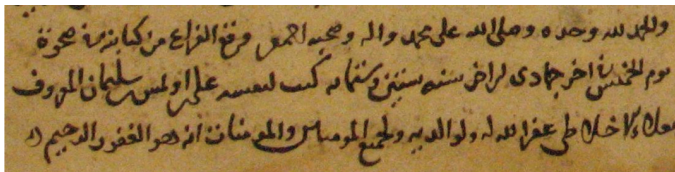 والحمد لله وحده وصلى الله على محمد واله وصحبه اجمعين وقع الفراغ من كتابته ضحوة
يوم الخميس اخر جمادى الاخر سنة ستين وستمايه كتب لنفسه على اولمس سليمان المعروف
غفر الله له ولوالديه ولجميع المومنين والمومنات انه هو الغفور الرحيم